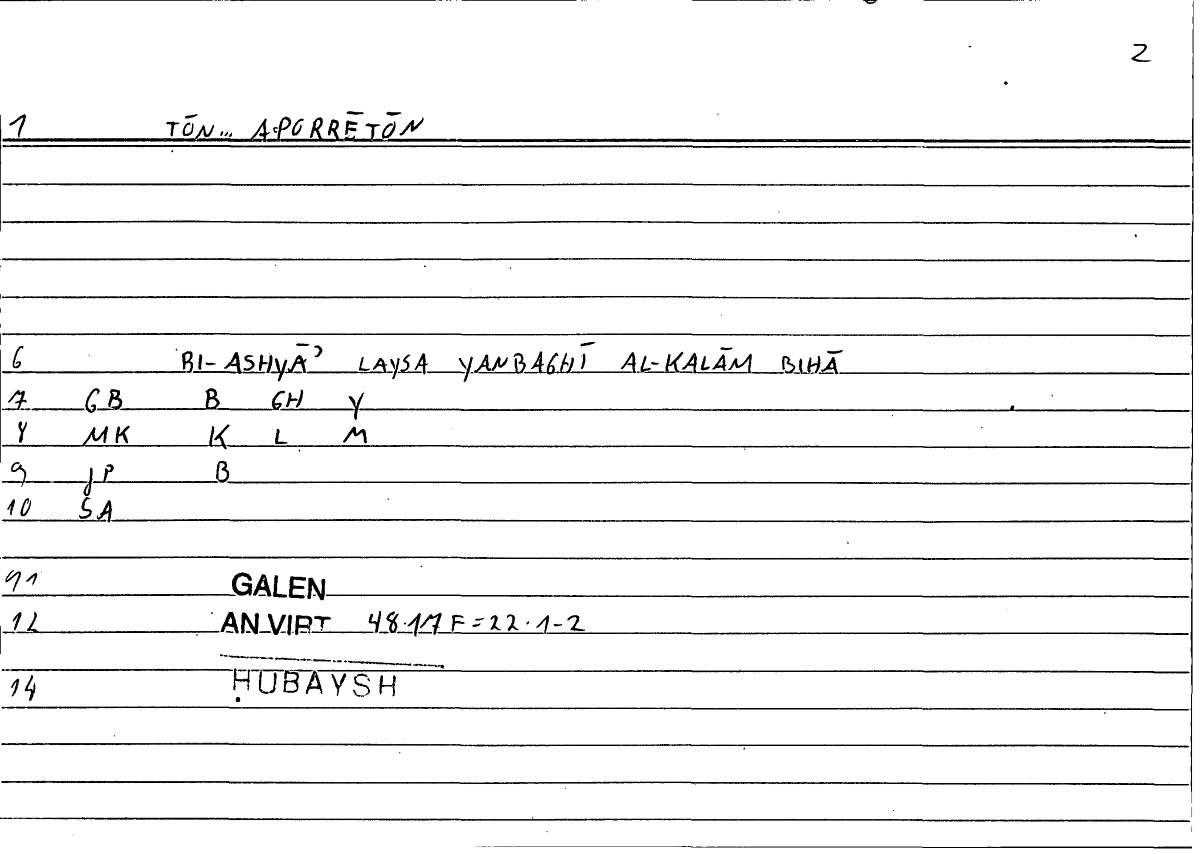 2
1 TŌN... A·PORRĒTŌN
6 BI-ASHYĀʾ LAYSA YANBAGHĪ AL-KALĀM BIHĀ
7 GB B GH Y
8 MK K L M
9 JP B
10 SA
11 GALEN
12 AN VIRT 48·17 F = 22·1-2
14 ḤUBAYSH